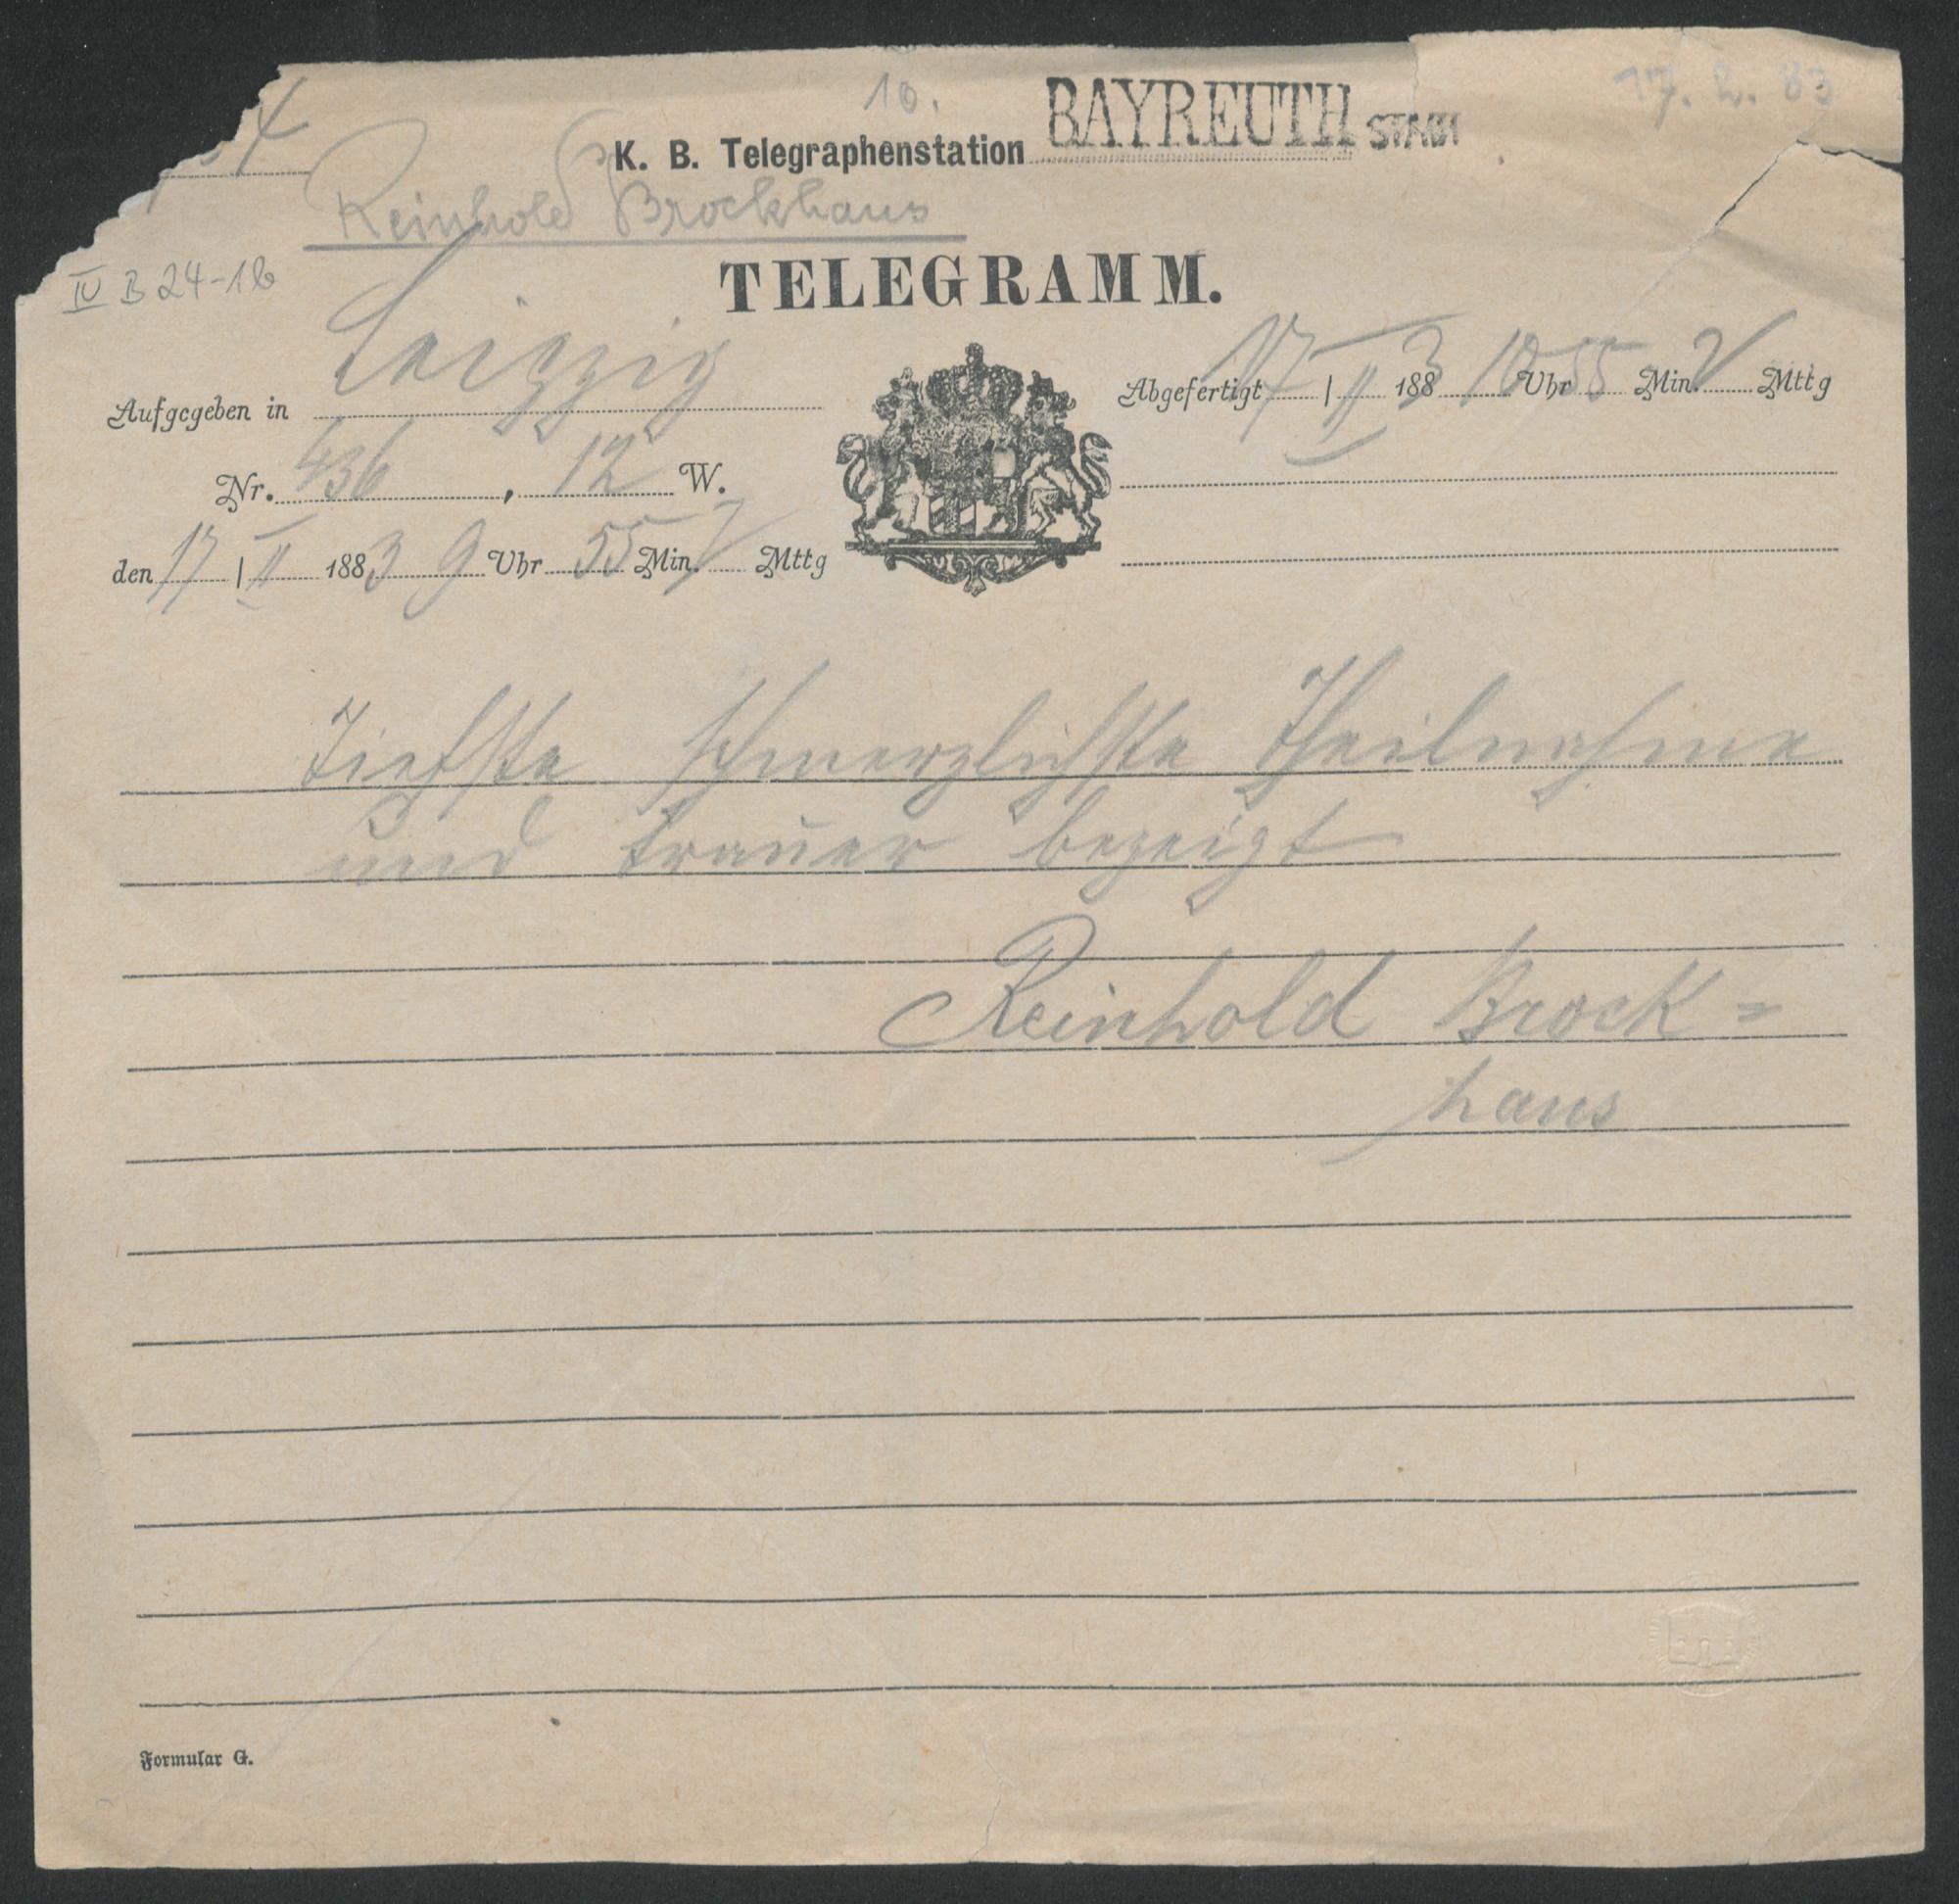 10.
17. 2. 83
K. B. Telegraphenstation BAYREUTH STADT
Reinhold Brockhaus
IV B 24-1b
TELEGRAMM.
Aufgegeben in Leipzig
Abgefertigt 17 / II 1883 10 Uhr 55 Min. V Mttg
Nr. 436, 12 W.
den 17 / II 1883 9 Uhr 55 Min. V Mttg
Tiefste schmerzlichste Theilnahme
und trauer bezeigt
Reinhold Brock=
haus
Formular G.